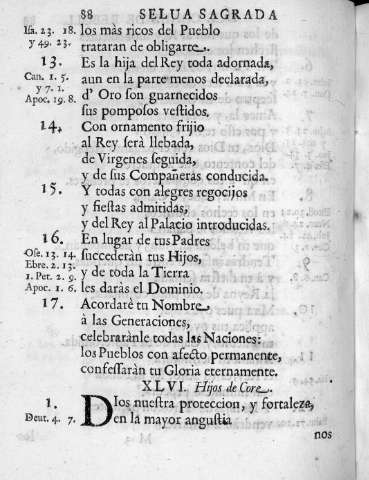 88 SELUA SAGRADA
Isa. 23. 18. los màs ricos del Pueblo
y 49. 23. trataran de obligarte.
13. Es la hija del Rey toda adornada,
Can. 1. 5. aun en la parte menos declarada,
y 7. 1.
Apoc. 19. 8. d' Oro son guarnecidos
sus pomposos vestidos.
14. Con ornamento frijio
al Rey serà llebada,
de Virgenes seguida,
y de sus Compañeras conducida.
15. Y todas con alegres regocijos
y fiestas admitidas,
y del Rey al Palacio introducidas.
16. En lugar de tus Padres
Ose. 13. 14 succederàn tus Hijos,
Ebre. 2. 13.
1. Pet. 2. 9. y de toda la Tierra
Apoc. 1. 6. les daràs el Dominio.
17. Acordarè tu Nombre
à las Generaciones,
celebrarànle todas las Naciones:
los Pueblos con afecto permanente,
confessaràn tu Gloria eternamente.
XLVI. Hijos de Core.
1. DIos nuestra proteccion, y fortaleza,
Deut. 4. 7. en la mayor angustia
nos